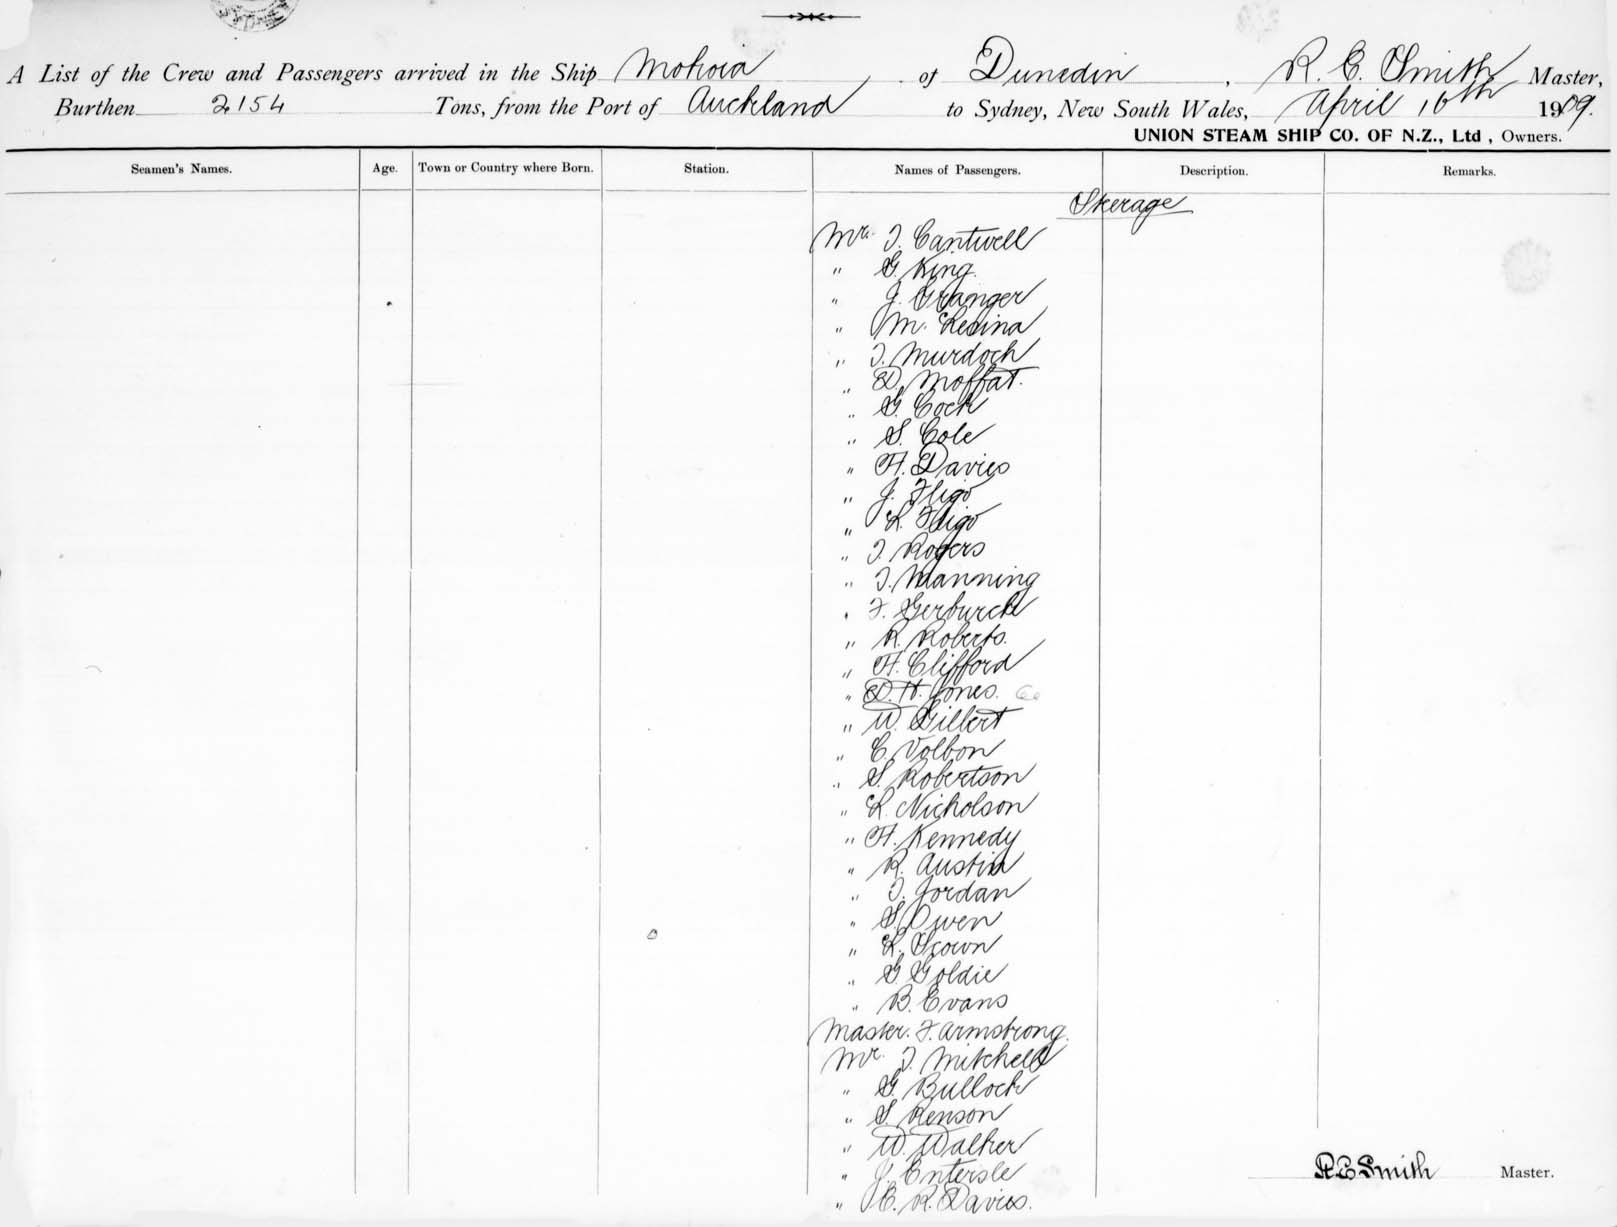 SYDNEY
A List of the Crew and Passengers arrived in the Ship Mokoia of Dunedin, R. E. Smith Master,
Burthen 2154 Tons, from the Port of Auckland to Sydney, New South Wales, April 16th 1909.
UNION STEAM SHIP CO. OF N.Z., Ltd, Owners.
Seamen's Names. Age. Town or Country where Born. Station. Names of Passengers. Description. Remarks.
Steerage
Mr. T. Cantwell
" G. King.
" J. Granger
" M. Resina
" T. Murdoch
" D. Moffat.
" G. Cock
" S. Cole
" H. Davies
" J. Fligo
" L. Fligo
" T. Rogers
" T. Manning
" F. Gerburch
" R. Roberts.
" H. Clifford
" D. H. Jones.
" W. Gilbert
" C. Volbon
" S. Robertson
" L. Nicholson
" H. Kennedy
" R. Austin
" T. Jordan
" S. Owen
" L. Scown
" G. Goldie
" B. Evans
Master. F. Armstrong.
Mr. T. Mitchell
" G. Bullock
" S. Renson
" W. Walker
" J. Entersle
" E. R. Davies.
R E Smith Master.